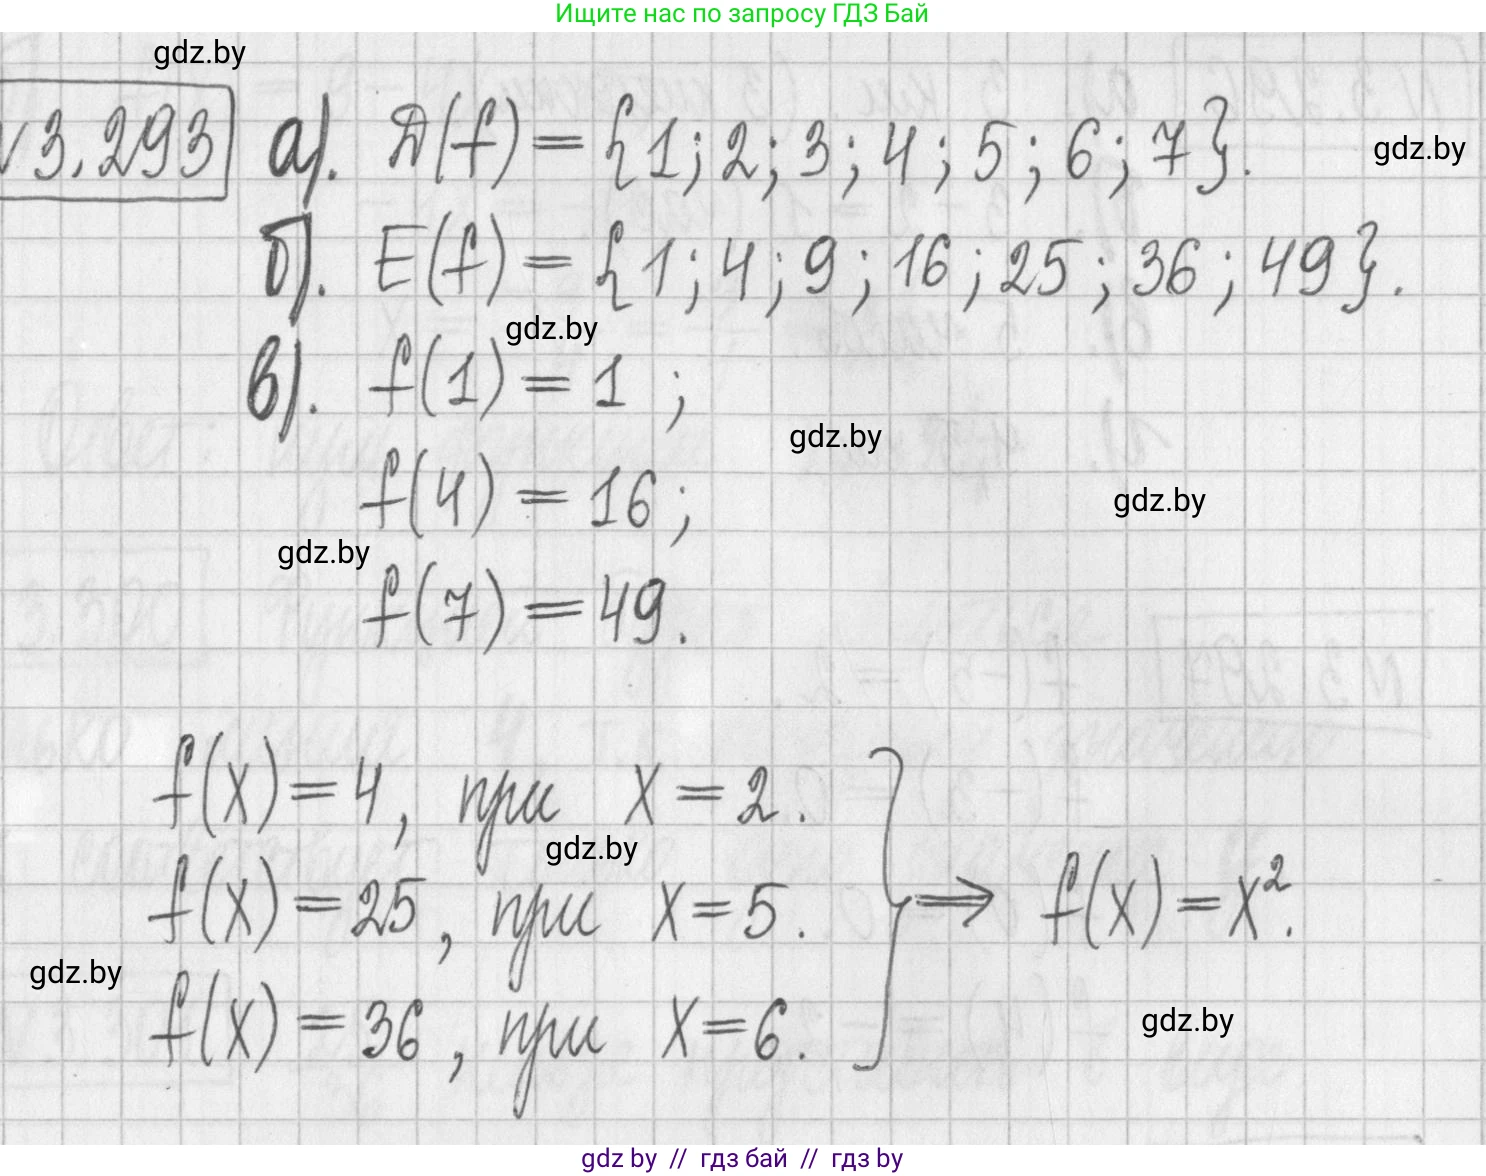 Ищите нас по запросу ГДЗ Бай
gdz.by
№3.293 а). D(f) = {1; 2; 3; 4; 5; 6; 7}.
gdz.by
б). E(f) = {1; 4; 9; 16; 25; 36; 49}.
gdz.by
в). f(1) = 1 ;
gdz.by
f(4) = 16;
gdz.by
gdz.by
f(7) = 49.
f(x) = 4, при x = 2.
gdz.by
f(x) = 25, при x = 5. } ⟹ f(x) = x².
gdz.by
f(x) = 36, при x = 6.
gdz.by
gdz by // гдз бай // гдз by